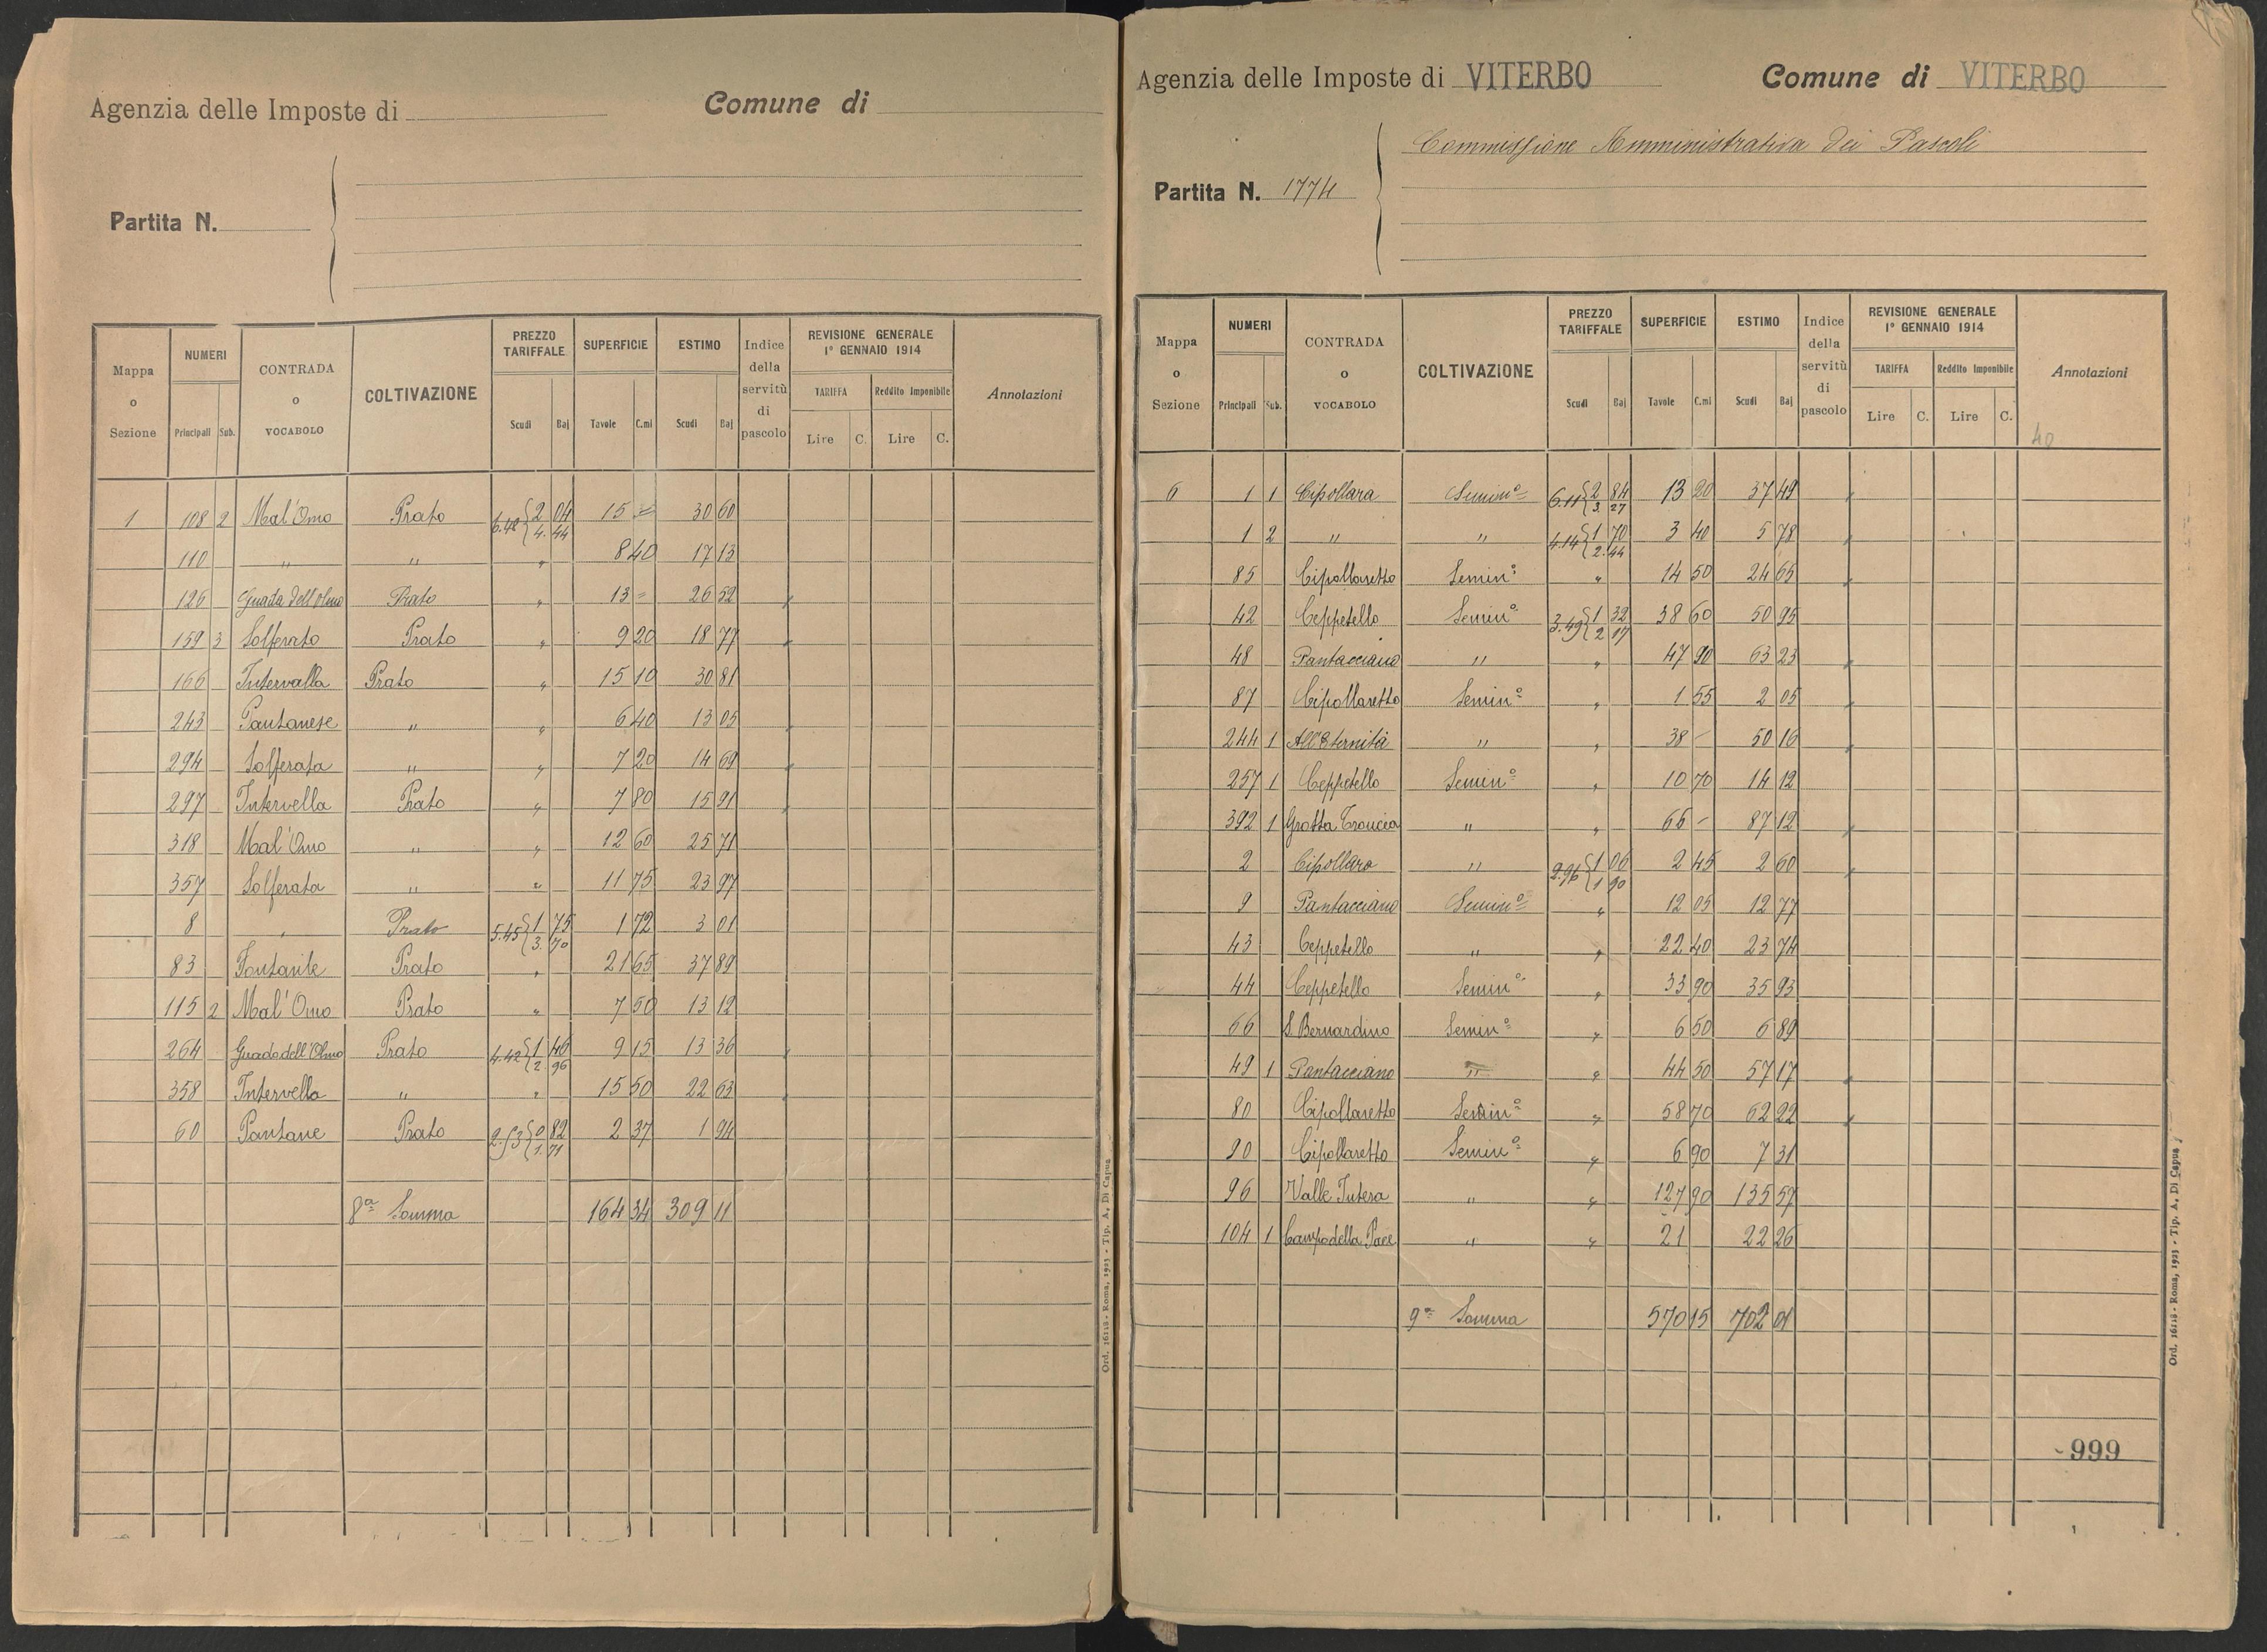 Agenzia delle Imposte di
Comune di
Partita N.
Mappa o Sezione
NUMERI
Principali Sub.
CONTRADA o VOCABOLO
COLTIVAZIONE
PREZZO TARIFFALE
Scudi Baj
SUPERFICIE
Tavole C.mi
ESTIMO
Scudi Baj
Indice della servitù di pascolo
REVISIONE GENERALE 1° GENNAIO 1914
TARIFFA
Lire C.
Reddito Imponibile
Lire C.
Annotazioni
1 108 2 Mal'Omo Prato 6.48 { 2 04 4. 44 15 = 30 60
110 " " " 8 40 17 13
126 Guada dell'olmo Prato " 13 = 26 52
159 3 Solferato Prato " 9 20 18 77
166 Intervalla Prato " 15 10 30 81
243 Pantanese " " 6 40 13 05
294 Solferata " " 7 20 14 69
297 Intervella Prato " 7 80 15 91
318 Mal'Omo " " 12 60 25 71
357 Solferata " " 11 75 23 97
8 " Prato 5.45 { 1 75 3. 70 1 72 3 01
83 Fontanile Prato " 21 65 37 89
115 2 Mal'Omo Prato " 7 50 13 12
264 Guado dell'Olmo Prato 4.42 { 1 46 2. 96 9 15 13 36
358 Intervella " " 15 50 22 63
60 Pantane Prato 2.53 { 0 82 1. 71 2 37 1 94
8ª Somma 164 34 309 11
Ord. 16118 - Roma, 1923 - Tip. A. Di Capua
Agenzia delle Imposte di VITERBO
Comune di VITERBO
Commissione Amministrativa dei Pascoli
Partita N. 1774
Mappa o Sezione
NUMERI
Principali Sub.
CONTRADA o VOCABOLO
COLTIVAZIONE
PREZZO TARIFFALE
Scudi Baj
SUPERFICIE
Tavole C.mi
ESTIMO
Scudi Baj
Indice della servitù di pascolo
REVISIONE GENERALE 1° GENNAIO 1914
TARIFFA
Lire C.
Reddito Imponibile
Lire C.
Annotazioni
40
6 1 1 Cipollara Semin° 6.11 { 2 84 3. 27 13 20 37 49
1 2 " " 4.14 { 1 70 2. 44 3 40 5 78
85 Cipollaretto Semin° " 14 50 24 65
42 Ceppetello Semin° 3.49 { 1 32 2 17 38 60 50 95
48 Pantacciano " " 47 90 63 23
87 Cipollaretto Semin° " 1 55 2 05
244 1 All'Eternità " " 38 - 50 16
257 1 Ceppetello Semin° " 10 70 14 12
392 1 Grotta Troncia " " 66 - 87 12
2 Cipollara " 2.96 { 1 06 1 90 2 45 2 60
9 Pantacciano Semin° " 12 05 12 77
43 Ceppetello " " 22 40 23 74
44 Ceppetello Semin° " 33 90 35 93
66 S. Bernardino Semin° " 6 50 6 89
49 1 Pantacciano " " 44 50 57 17
80 Cipollaretto Semin° " 58 70 62 22
90 Cipollaretto Semin° " 6 90 7 31
96 Valle Intera " " 127 90 135 57
104 1 Campo della Pace " " 21 22 26
9ª Somma 570 15 702 01
999
Ord. 16118 - Roma, 1923 - Tip. A. Di Capua